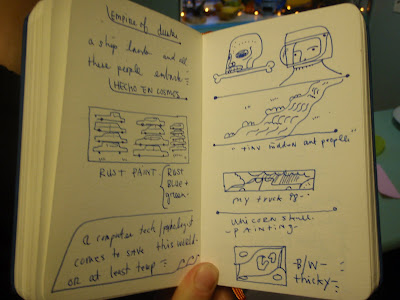 Empire of
a ship lands and all
these people embark =
HECHO EN COSMOS
RUST PAINT
RUST
BLUE +
green.
a computer tech/
comes to save this world -
OR at least temp =
"TINY
ant people"
my truck 98 -
UNICORN SKULL
- PAINTING -
- B/W -
thicky =